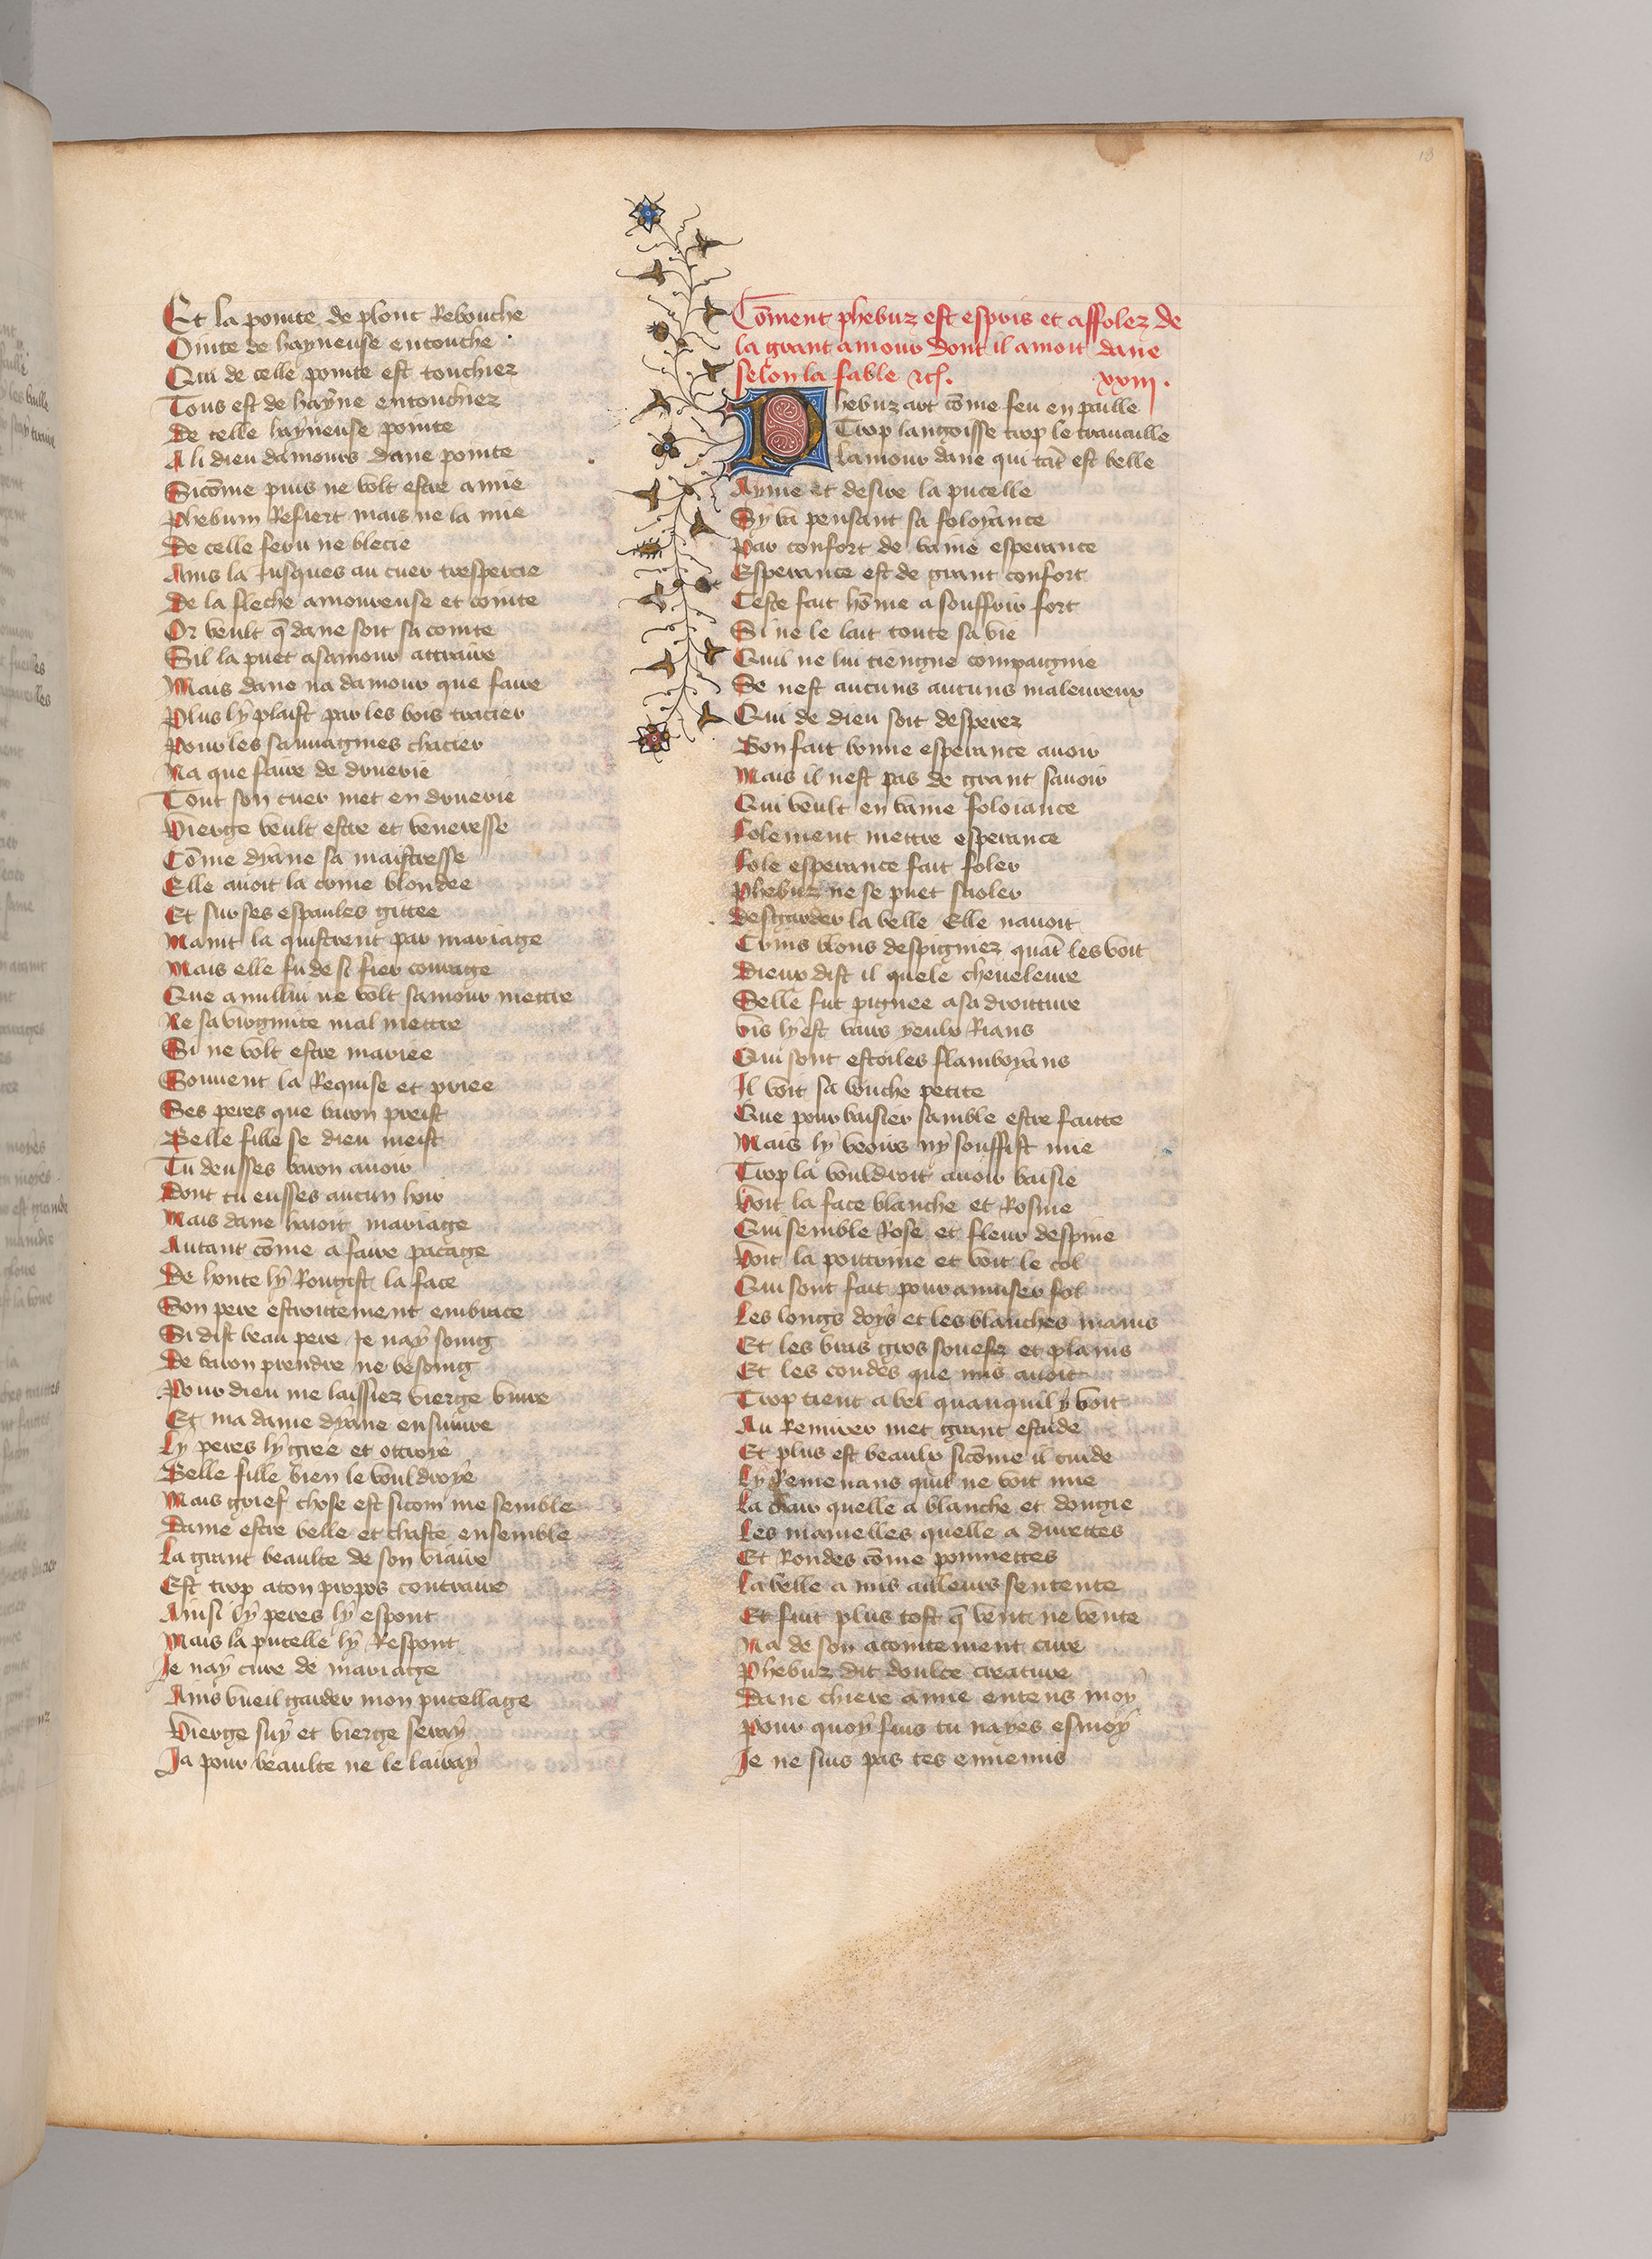 Et la pointe de plont Rebouche
Ointe de hayneuse entouche
Qui de celle pointe est touchiez
Tous est de hayne entouchiez
De celle hayneuse pointe
A li dieu damours dane pointe
Sicōme puis ne volt estre amie
Phebum Refiert mais ne la mie
De celle feru ne blecie
Ains la Jusques au cuer trespercie
De la fleche amoureuse et cointe
Or veult q̄ dane soit sa cointe
Sil la puet asamour attraire
Mais dane na damour que faire
Plus ly plaist par les bois tracier
Pour les sauuagines chacier
Na que faire de druerie
Tout son cuer met en druerie
Vierge veult estre et veneresse
Cōme dyane sa maistresse
Elle auoit la come blondee
Et sur ses espaules gittee
Maint la quistrent par mariage
Mais elle fu de si fier courage
Que a nullui ne volt samour mettre
Ne sa virginite mal mettre
Si ne volt estre mariee
Souuent la Requise et priee
Ses peres que baron preist
Belle fille se dieu meist
Tu deusses baron auoir
Dont tu eusses aucun hoir
Mais dane haioit mariage
Autant cōme a faire pacage
De honte ly Rougist la face
Son pere estroittement embrace
Si dist beau pere Je nay soing
De baron prendre ne besoing
Pour dieu me laissiez vierge viure
Et ma dame dyane ensuiure
Ly peres ly gree et ottroye
Belle fille bien le vouldroye
Mais grief chose est sicom me semble
Dame estre belle et chaste ensemble
La grant beaulte de son viaire
Est trop aton propos contraire
Ainsi ly peres ly espont
Mais la pucelle ly Respont
Je nay cure de mariage
Ains vueil garder mon pucellage
Vierge suy et vierge seray
Ja pour beaulte ne le lairay
Cōment phebuz est espris et affolez de
la grant amour dont il amoit dane
selon la fable etc̄. xxiij.
Phebuz art cōme feu en paille
Trop langoisse trop le trauaille
Lamour dane qui tāt est belle
Ayme et desire la pucelle
Sy va pensant sa foloyance
Par confort de vaine esperance
Esperance est de grant confort
Ceste fait hōme a souffrir fort
Si ne le lait toute sa vie
Quil ne lui tiengne compaignie
De nest aucuns aucuns maleureux
Qui de dieu soit desperez
Bon fait bonne esperance auoir
Mais il nest pas de grant sauoir
Qui veult en vaine foloiance
Folement mettre esperance
Fole esperance fait foler
Phebuz ne se puet saoler
Desgarder la belle Elle nauoit
Crins blons despigniez quāt les voit
Dieux dist il quele cheueleure
Selle fut pignee a sa droitture
Vis ly est vairs yeulx Rians
Qui sont estoiles flamboyans
Il voit sa bouche petite
Que pour baisier samble estre faitte
Mais ly veoirs ny souffist mie
Trop la vouldroit auoir baisie
Voit la face blanche et Rosine
Qui semble Rose et fleur despine
Voit la poittrine et voit le col
Qui sont fait pour amuser fol
Les longs doys et les blanches mains
Et les bras gros souefz et plains
Et les coudes que nus auoit
Trop tient a bel quanquil y voit
Au Remirer met grant estude
Et plus est beaulx sicōme il cuide
Ly Remenans quil ne voit mie
La char quelle a blanche et dougie
Les mamelles quelle a durettes
Et Rondes cōme pommettes
La belle a mis ailleurs sentente
Et fuit plus tost q̄ vent ne vente
Na de son acointement cure
Phebuz dit doulce creature
Dane chiere amie entens moy
Pour quoy fuis tu nayes esmoy
Je ne suis pas tes ennemis
18